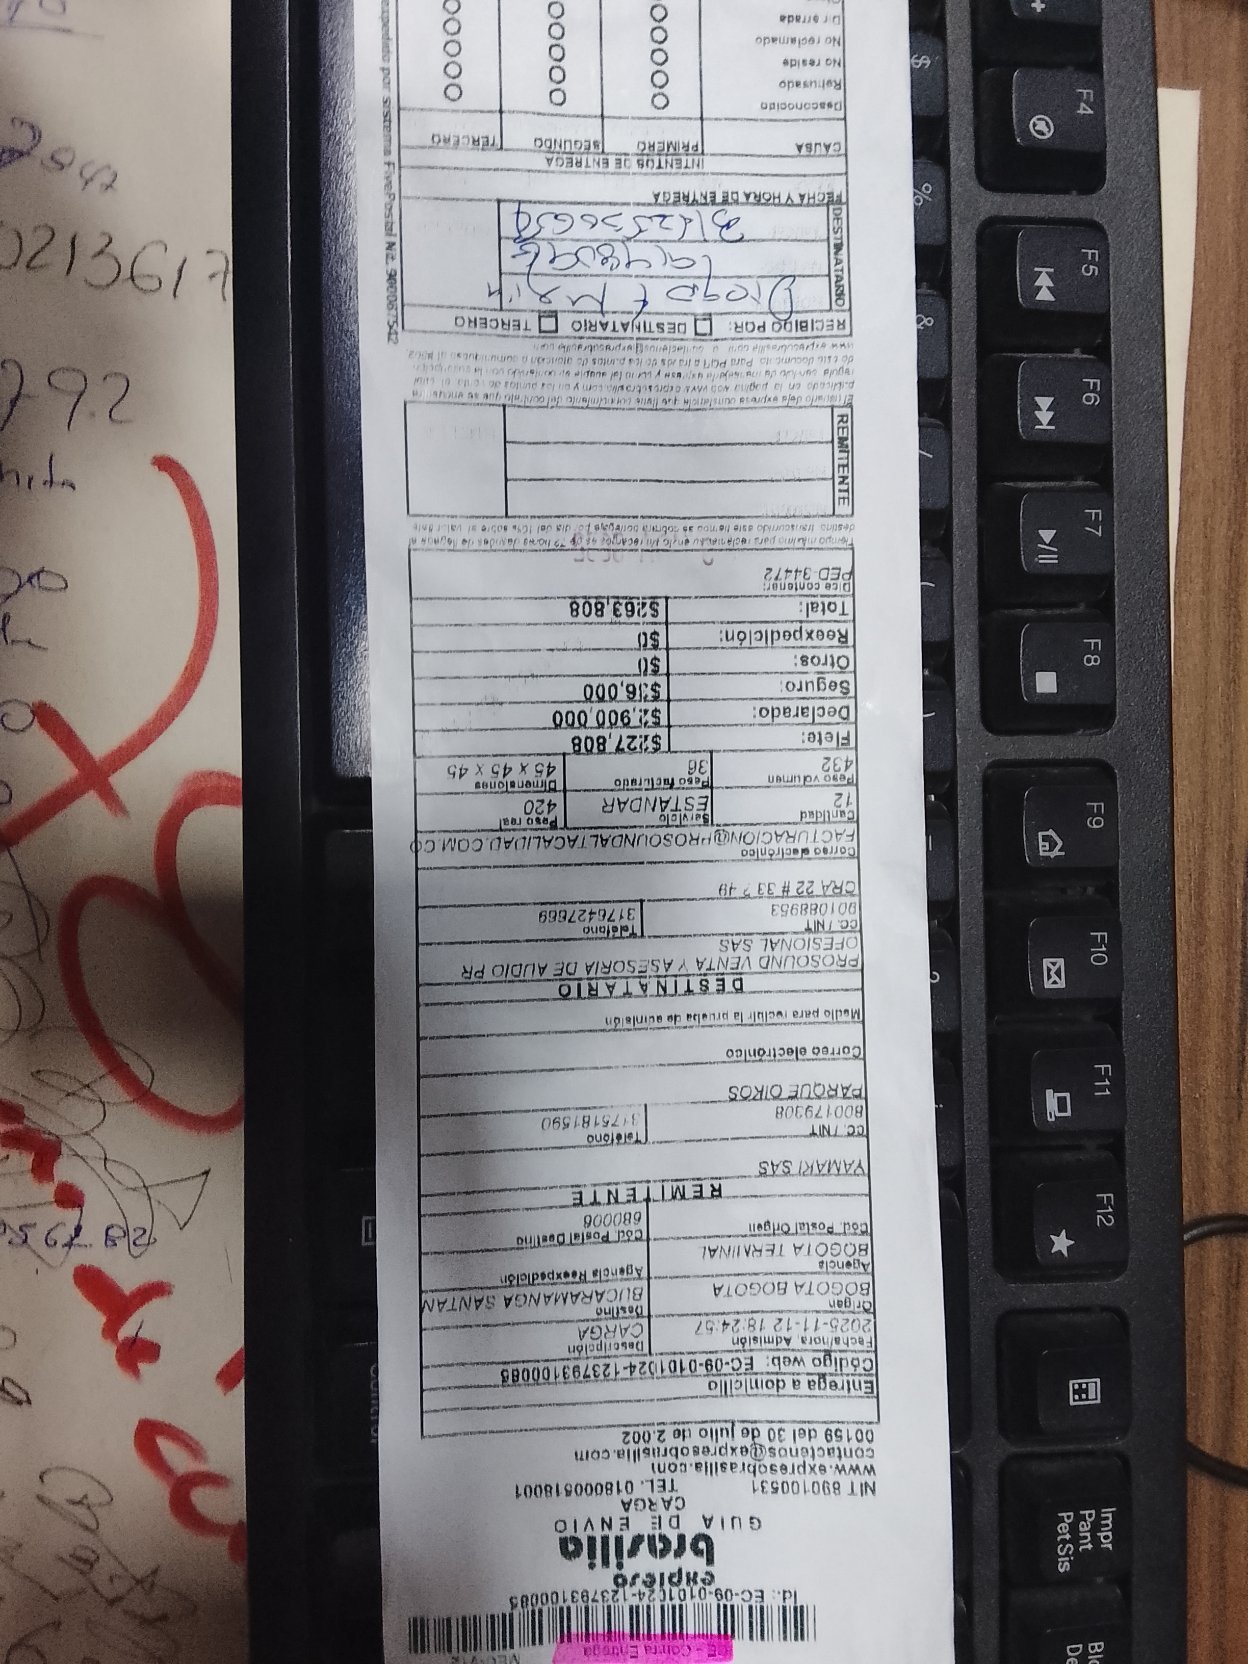 CE - Contra Entrega
Id.: EC-09-0101024-123793100085
expreso
brasilia
GUIA DE ENVIO
CARGA
NIT 890100531 TEL. 018000518001
www.expresobrasilia.com
contactenos@expresobrasilia.com
00159 del 30 de julio de 2.002
Entrega a domicilio
Código web: EC-09-0101024-123793100085
Fecha/hora Admisión Descripción
2025-11-12 18:24:57 CARGA
Origen Destino
BOGOTA BOGOTA BUCARAMANGA SANTAN
Agencia Agencia Reexpedición
BOGOTA TERMINAL
Cód. Postal Origen Cód. Postal Destino
680006
REMITENTE
YAMAKI SAS
CC. / NIT Teléfono
800179308 3175181590
PARQUE OIKOS
Correo electrónico
Medio para recibir la prueba de admisión
DESTINATARIO
PROSOUND VENTA Y ASESORIA DE AUDIO PR
OFESIONAL SAS
CC. / NIT Teléfono
901088953 3176427669
CRA 22 # 33 ? 49
Correo electrónico
FACTURACION@PROSOUNDALTACALIDAD.COM.CO
Cantidad Servicio Peso real
12 ESTANDAR 420
Peso volumen Peso facturado Dimensiones
432 36 45 x 45 x 45
Flete: $227,808
Declarado: $2,900,000
Seguro: $36,000
Otros: $0
Reexpedición: $0
Total: $263,808
Dice contener:
PED-34472
REMITENTE
RECIBIDO POR: DESTINATARIO TERCERO
DESTINATARIO
Diego
FECHA Y HORA DE ENTREGA
INTENTOS DE ENTREGA
CAUSA PRIMERO SEGUNDO TERCERO
Desconocido
Rehusado
No reside
No reclamado
Dir errada
F4
F5
F6
F7
F8
F9
F10
F11
F12
Impr
Pant
PetSis
0213617
792